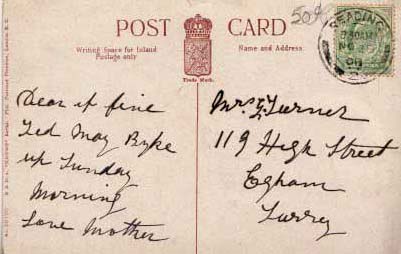 POST CARD
Writing Space for Inland
Postage only
Name and Address.
Trade Mark.
50p
READING
Dear if fine
Ted May Byke
up Sunday
Morning
Love Mother
Mrs G Turner
119 High Street
Egham
Surrey